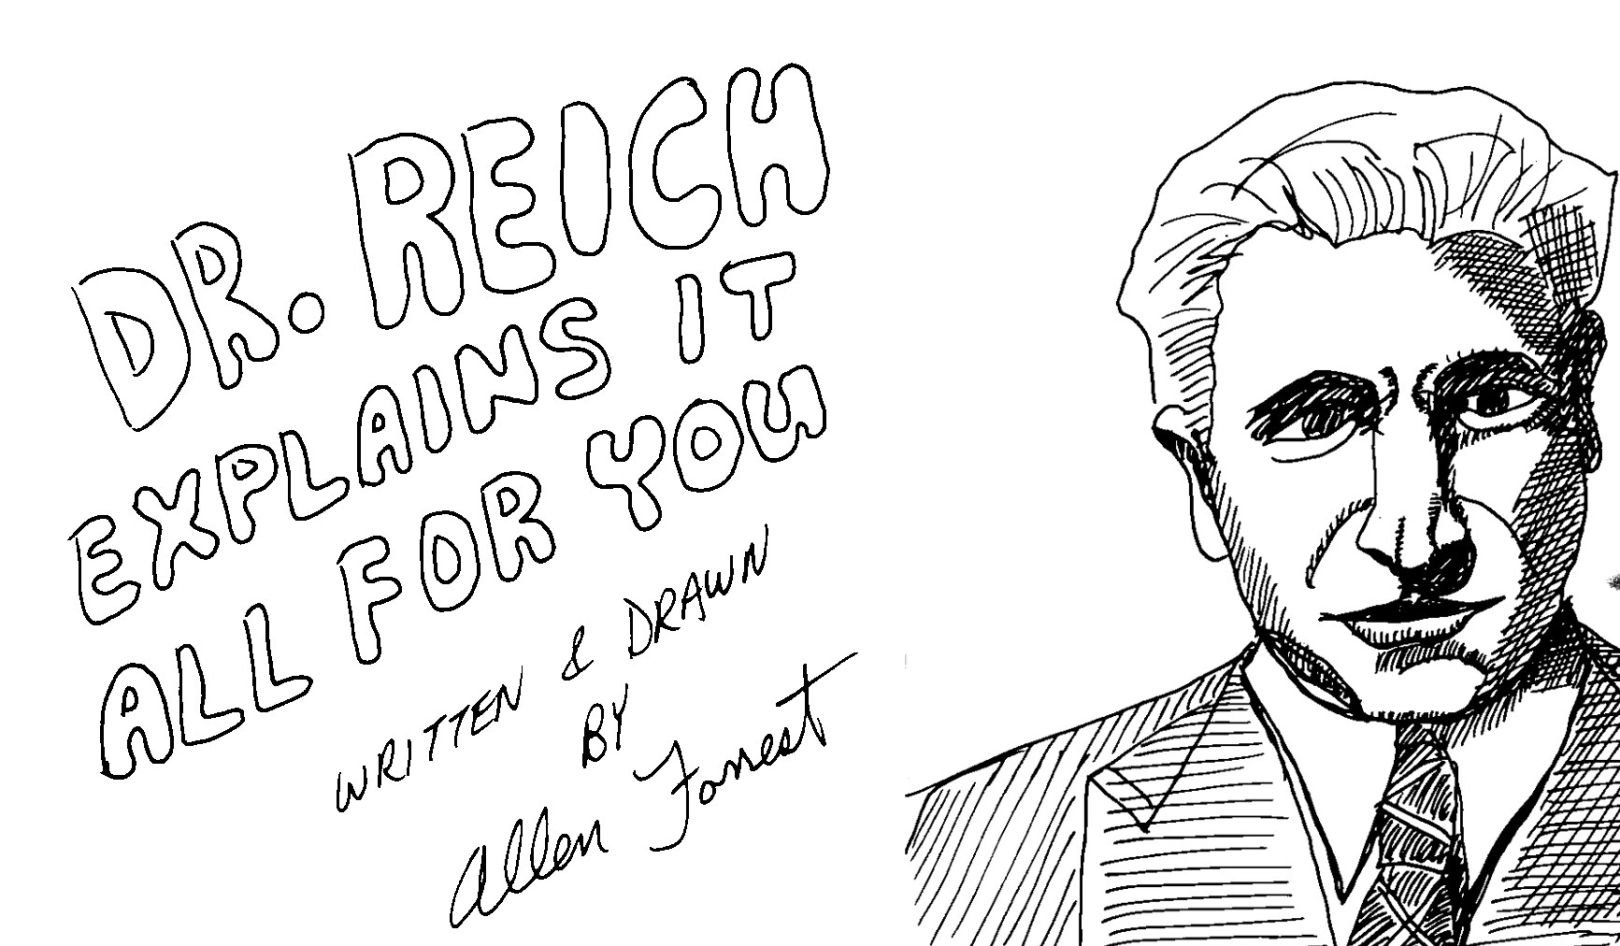 DR. REICH
EXPLAINS IT
ALL FOR YOU
WRITTEN & DRAWN
BY
Allen Forrest